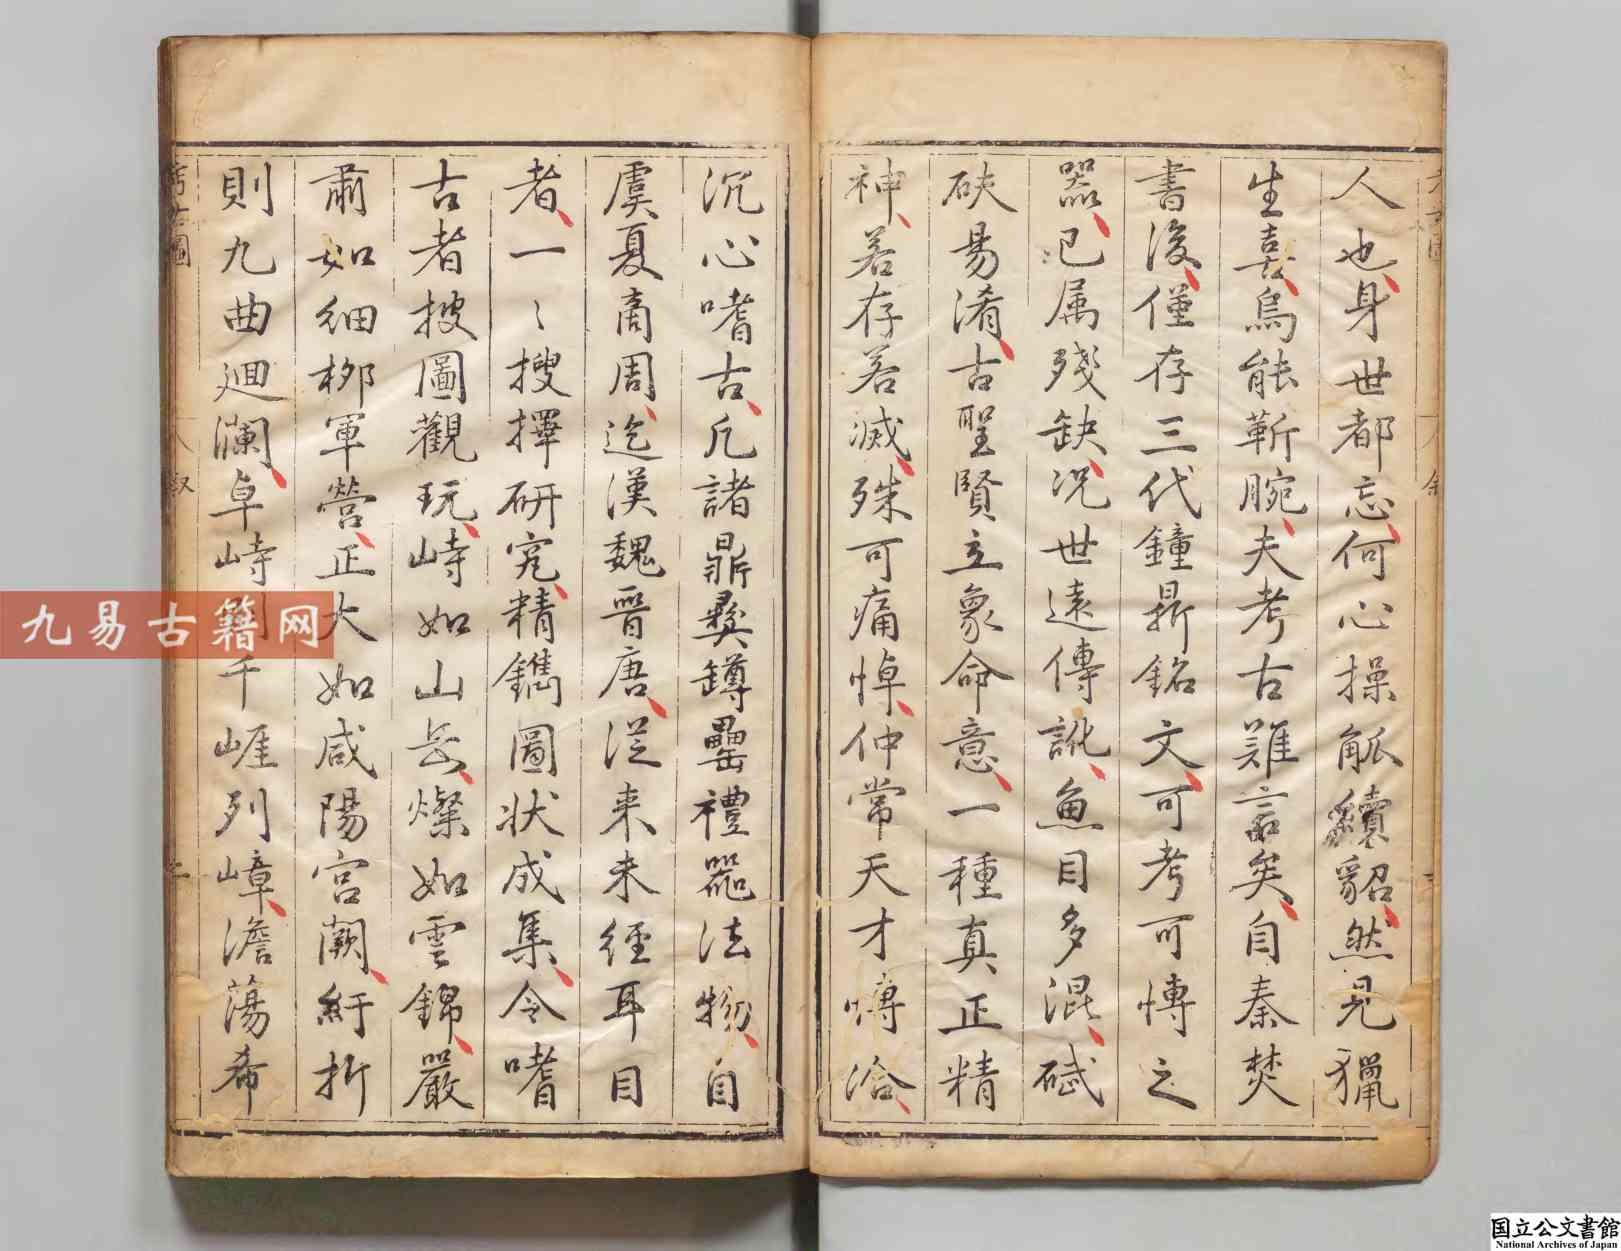 人也身世都忘何心操觚續貂然見獵
生喜烏能靳腕夫考古難言矣自秦焚
書後僅存三代鐘鼎銘文可考可慱之
器已属殘缺况世遠傳訛魚目多混碔
砆易淆古聖賢立象命意一種真正精
神若存若滅殊可痛悼仲常天才愽洽
沉心嗜古凡諸鼎彝罇罍禮器法物自
虞夏商周迄漢魏晉唐從来未經耳目
者一〻搜擇研究精鐫圖状成集令嗜
古者披圖觀玩峙如山岳燦如雲錦嚴
肅如細栁軍營正大如咸陽宫闕紆折
則九曲廻瀾卓峙千崕列嶂澹蕩希
考古圖
叙
二
九易古籍网
国立公文書館
National Archives of Japan